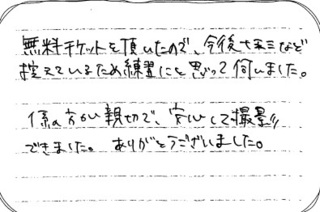 無料チケットを頂いたので、今後七五三など
控えているため練習にと思って伺いました。
係の方が親切で、安心して撮影
できました。ありがとうございました。